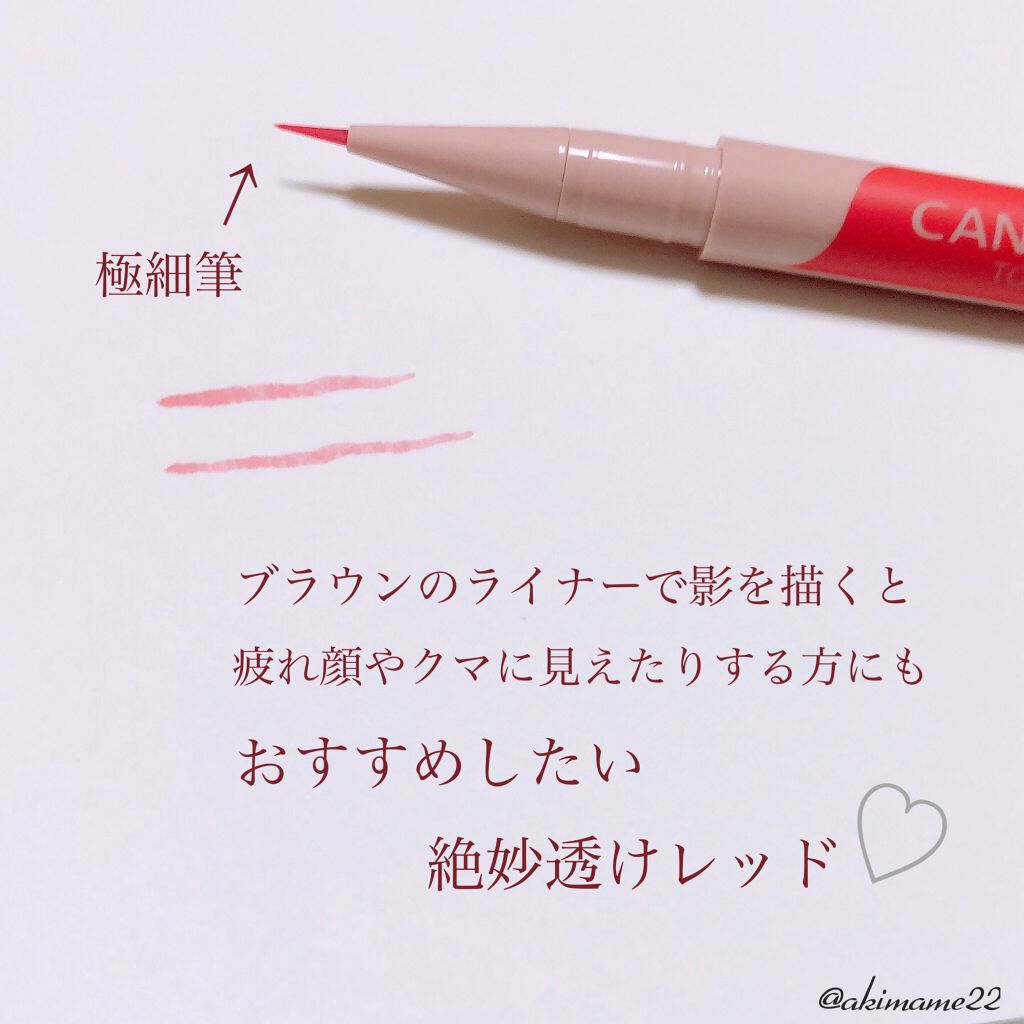 CAN
極細筆
ブラウンのライナーで影を描くと
疲れ顔やクマに見えたりする方にも
おすすめしたい
絶妙透けレッド
@akimame22